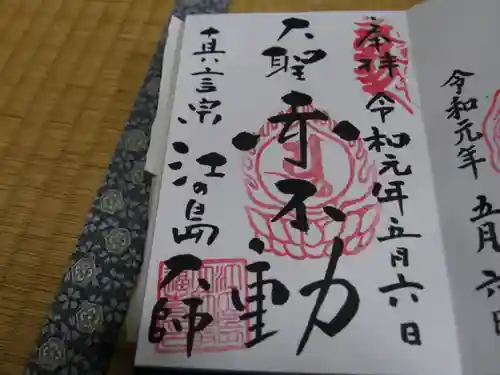 奉拝 令和元年五月六日
大聖赤不動
真言宗 江の島大師
令和元年五月六日